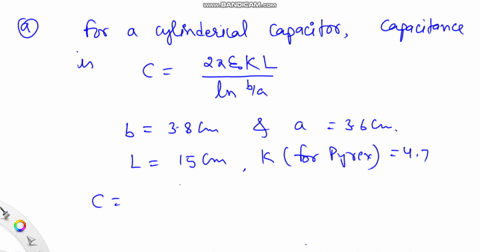 WWW.BANDICAM.COM
ⓐ for a cylinderical capacitor, capacitance
is C = 2πε₀KL / ln b/a
b = 3.8 cm & a = 3.6 cm.
L = 15 cm, K (for Pyrex) = 4.7
C =